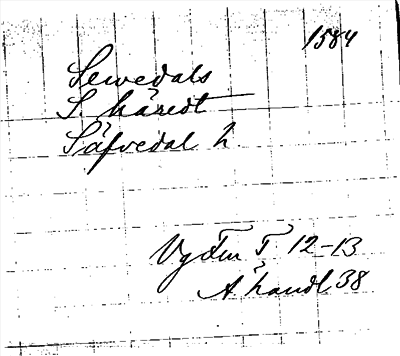 1584
Sewedals
S. häredt
Säfvedal h
T 12-13
Å handl 38